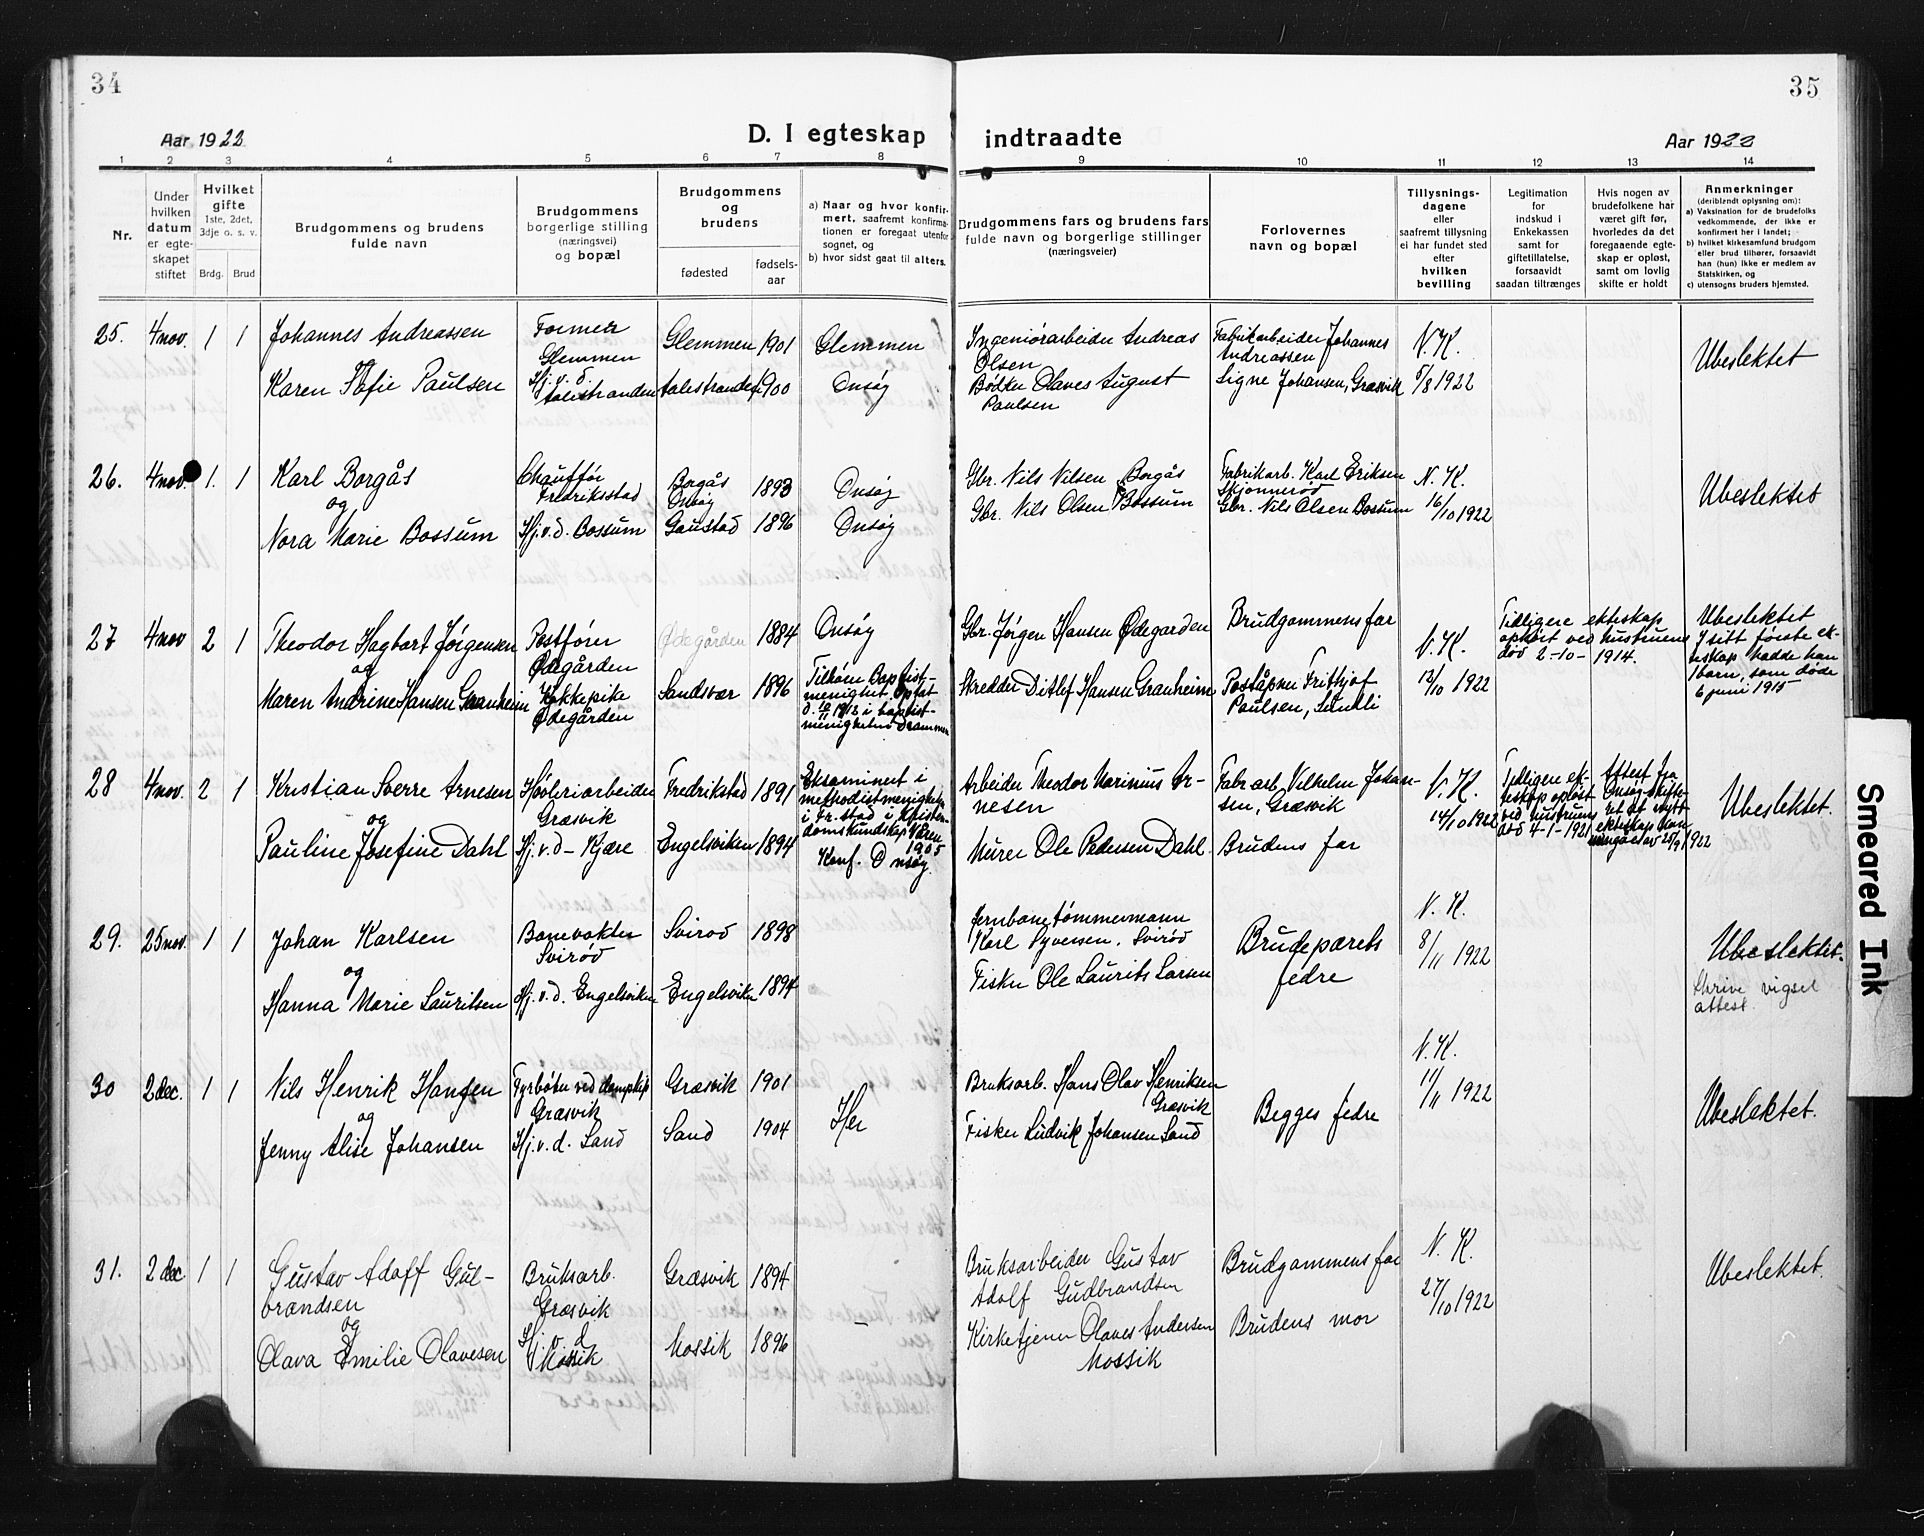 34
35
Aar 1922
D. I egteskap
indtraadte
Aar 1922
1 2 3 4 5 6 7 8 9 10 11 12 13 14
Nr.
Under hvilken datum er egte-skapet stiftet
Hvilket gifte
1ste, 2det, 3dje o. s. v.
Brdg. Brud
Brudgommens og brudens fulde navn
Brudgommens borgerlige stilling (næringsvei) og bopæl
Brudgommens og brudens
fødested
fødsels-aar
a) Naar og hvor konfir-mert, saafremt konfirma-tionen er foregaat utenfor sognet, og
b) hvor sidst gaat til alters.
Brudgommens fars og brudens fars fulde navn og borgerlige stillinger (næringsveier)
Forlovernes navn og bopæl
Tillysnings-dagene eller saafremt tillysning ei har fundet sted efter hvilken bevilling
Legitimation for indskud i Enkekassen samt for giftetillatelse, forsaavidt saadan tiltrænges
Hvis nogen av brudefolkene har været gift før, hvorledes da det foregaaende egte-skap er opløst, samt om lovlig skifte er holdt
Anmerkninger
(deriblandt oplysning om):
a) Vaksination for de brudefolks vedkommende, der ikke er konfirmert her i landet;
b) hvilket kirkesamfund brudgom eller brud tilhører, forsaavidt han (hun) ikke er medlem av Statskirken, og
c) utensogns bruders hjemsted.
25. 4 nov. 1 1
Johannes Andreassen
Karen Sofie Paulsen
Former
Glemmen
Hj. v. d
Glemmen 1901
1900
Glemmen
Onsøy
Ingeniørarbeider Andreas
Olsen
Bødker Olaves August
Paulsen
Fabrikarbeider Johannes
Andreassen
Signe Johansen, Græsvik
N. K.
5/8 1922
Ubeslektet
26. 4 nov. 1. 1
Karl Borgås
og
Nora Marie Bossum
Chauffør
Fredriksstad
Hj. v. d. Bossum
Borgås
Onsøy
Gaustad
1893
1896
Onsøy
Onsøy
Gbr. Nils Nilsen Borgås
Gbr. Nils Olsen Bossum
Fabrikarb. Karl Eriksen
Skjønnerød
Gbr. Nils Olsen Bossum
N. K.
16/10 1922
Ubeslektet
27 4 nov 2 1
Theodor Hagbart Jørgensen
og
Maren Andrine Hansen Granheim
Postfører
Ødegården
Kokkepike
Ødegården
Ødegården 1884
Sandsvær 1896
Onsøy
Tilhører Baptist-
menighet. Optat
d. 10/11 1913 i baptist-
menigheten Drammen
Gbr. Jørgen Hansen Ødegarden
Skredder Ditlef Hansen Granheim
Brudgommens far
Poståpner Frithjof
Paulsen,
N. K.
13/10 1922
Tidligere ekteskap
opløst ved hustruens
død 2-10-1914.
Ubeslektet
I sitt første ek-
teskap hadde han
1 barn, som døde
6 juni 1915
28 4 nov. 2 1
Kristian Sverre Arnesen
og
Pauline Josefine Dahl
Høvleriarbeider
Græsvik
Hj. v. d - Kjære
Fredrikstad 1891
Engelsviken 1894
Eksaminert i
methodistmenigheten
i Fr.stad i kristen-
domskundskap våren
1905
Konf. Onsøy.
Arbeider Theodor Marinius Ar-
nesen
Murer Ole Pedersen Dahl.
Fabr arb. Vilhelm Johan-
sen, Græsvik
Brudens far
N. K.
14/10 1922
Tidligere ek-
teskap opløst
ved hustruens
død 4-1-1921
Attest fra
Onsøy skifte-
ret at nytt
ekteskap kan
inngåes av 25/9 1922
Ubeslektet.
29. 25 nov. 1 1
Johan Karlsen
og
Hanna Marie Lauritsen
Banevokter
Svirød
Hj. v. d. Engelsviken
Svirød 1898
Engelsviken 1894
Jernbanetømmermann
Karl Syversen. Svirød
Fisker Ole Laurits Larsen
Brudeparets
fedre
N. K.
8/11 1922
Ubeslektet.
Skrive vigsel
attest.
30 2 dec. 1 1
Nils Henrik Hansen
og
Jenny Alise Johansen
Fyrbøter ved dampskip
Græsvik
Hj. v. d. Sand
Græsvik 1901
Sand 1904
Her
Bruksarb. Hans Olav Henriksen
Græsvik
Fisker Ludvik Johansen Sand
Begges fedre
N. K.
11/11 1922
Ubeslektet.
31. 2 dec 1 1
Gustav Adolf Gul-
brandsen
og
Olava Emilie Olavesen
Bruksarb.
Græsvik
Hj. v. d
Mossik
Græsvik 1894
Mossik 1896
–
Bruksarbeider Gustav
Adolf Gudbrandsen
Kirketjener Olaves Andersen
Mossik
Brudgommens far
Brudens mor
N. K.
27/10 1922
Ubeslektet.
Smeared Ink